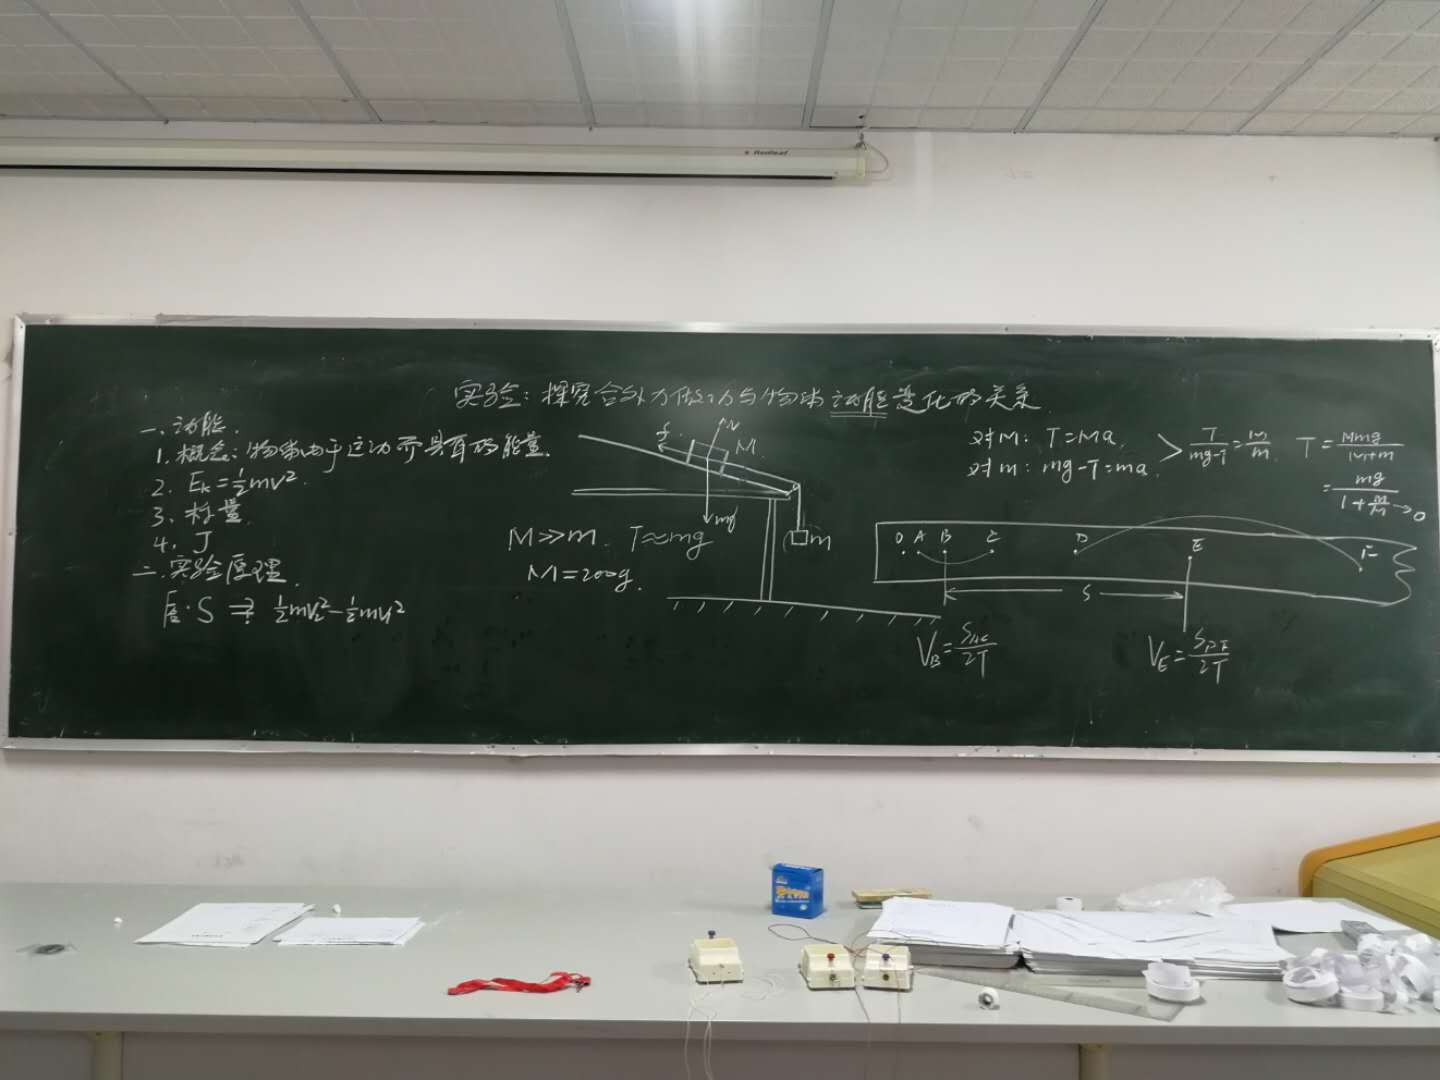 Redleaf
实验：探究合外力做功与物体动能变化的关系
一、动能.
1. 概念：物体由于运动而具有的能量.
2. Eₖ=½mv².
3、标量.
4、J
二、实验原理.
F合·S ⇒? ½mv₂²-½mv₁²
f
N
M
mg
m
M≫m. T≈mg
M=200g.
对M: T=Ma.
对m: mg-T=ma.
T/(mg-T)=M/m
T=Mmg/(M+m)
=mg/(1+m/M)→0
O A B C D E F
S
V_B=S_AC/2T
V_E=S_DF/2T